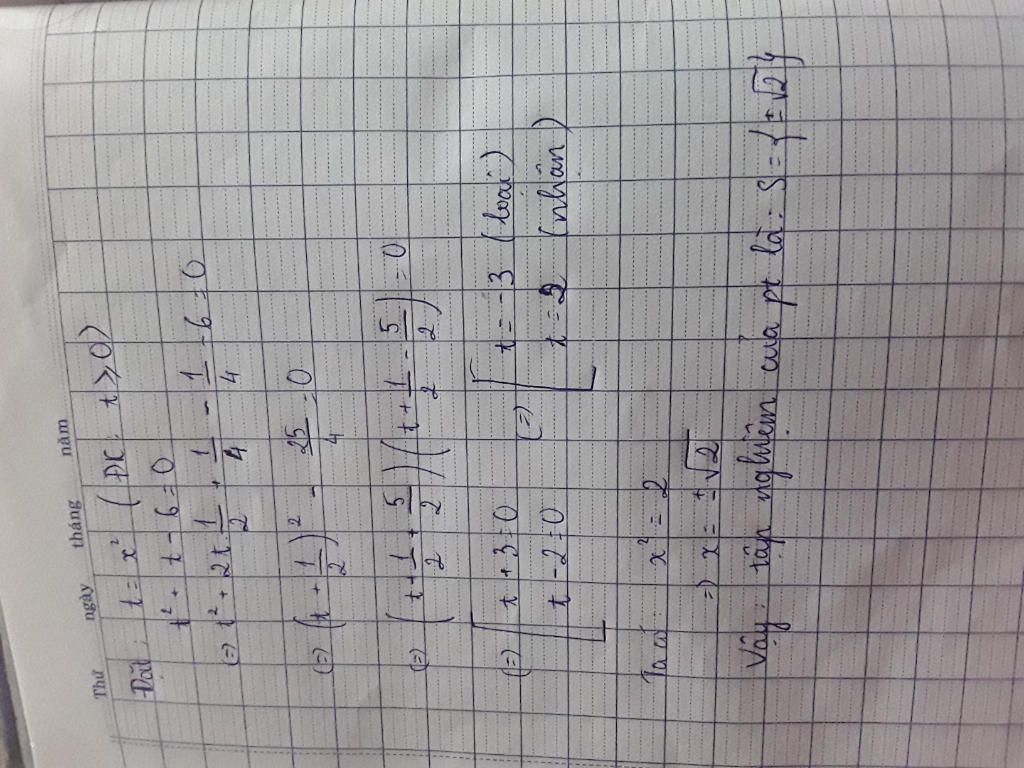 Thứ ngày tháng năm
Đặt: t = x² (ĐK: t ≥ 0)
t² + t - 6 = 0
(=) t² + 2t.1/2 + 1/4 - 1/4 - 6 = 0
(=) (t + 1/2)² - 25/4 = 0
(=) (t + 1/2 + 5/2)(t + 1/2 - 5/2) = 0
(=) [ t + 3 = 0 (=) [ t = -3 (loại)
t - 2 = 0 t = 2 (nhận)
Ta có: x² = 2
=) x = ±√2
Vậy: tập nghiệm của pt là: S = {±√2}